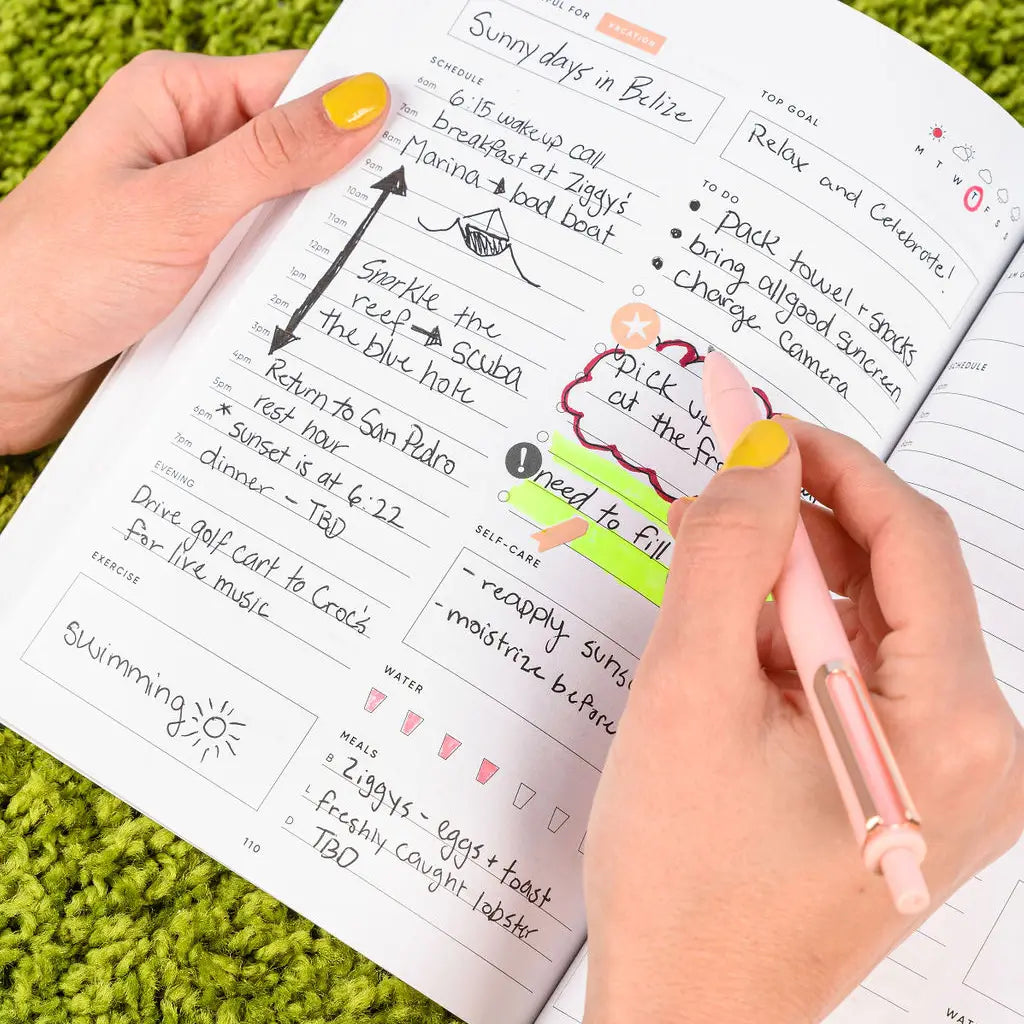 FUL FOR VACATION
Sunny days in Belize
SCHEDULE
6am 6:15 wake up call
7am breakfast at Ziggy's
8am Marina → load boat
9am
10am
11am
12pm Snorkle the
1pm reef → Scuba
2pm the blue hole
3pm
4pm Return to San Pedro
5pm rest hour
6pm * sunset is at 6:22
7pm dinner - TBD
EVENING
Drive golf cart to Croc's
for live music
EXERCISE
Swimming
110
TOP GOAL
Relax and Celebrate!
M T W T F S S
TO DO
• Pack towel + snacks
• bring all good sunscreen
• charge camera
pick up
at the
! need to fill
SELF-CARE
- reapply
- moistrize before
WATER
MEALS
B Ziggys - eggs + toast
L freshly caught lobster
D TBD
SCHEDULE